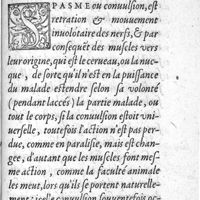 SPASME ou conuulsion, est
retration & mouuement
inuolõtaire des nerfs, & par
consequẽt des muscles vers
leur origine, qui est le cerueau, ou la nuc-
que, de sorte qu'il n'est en la puissance
du malade estendre selon sa volonté
(pendant laccés) la partie malade, ou
tout le corps, si la conuulsion estoit vni-
uerselle, toutefois l'action n'est pas per-
due, comme en paralisie, mais est chan-
gee, d'autant que les muscles font mes-
me action, comme la faculté animale
les meut, lors qu'ils se portent naturelle-
ment: icelle conuulsion souuentefois oc-